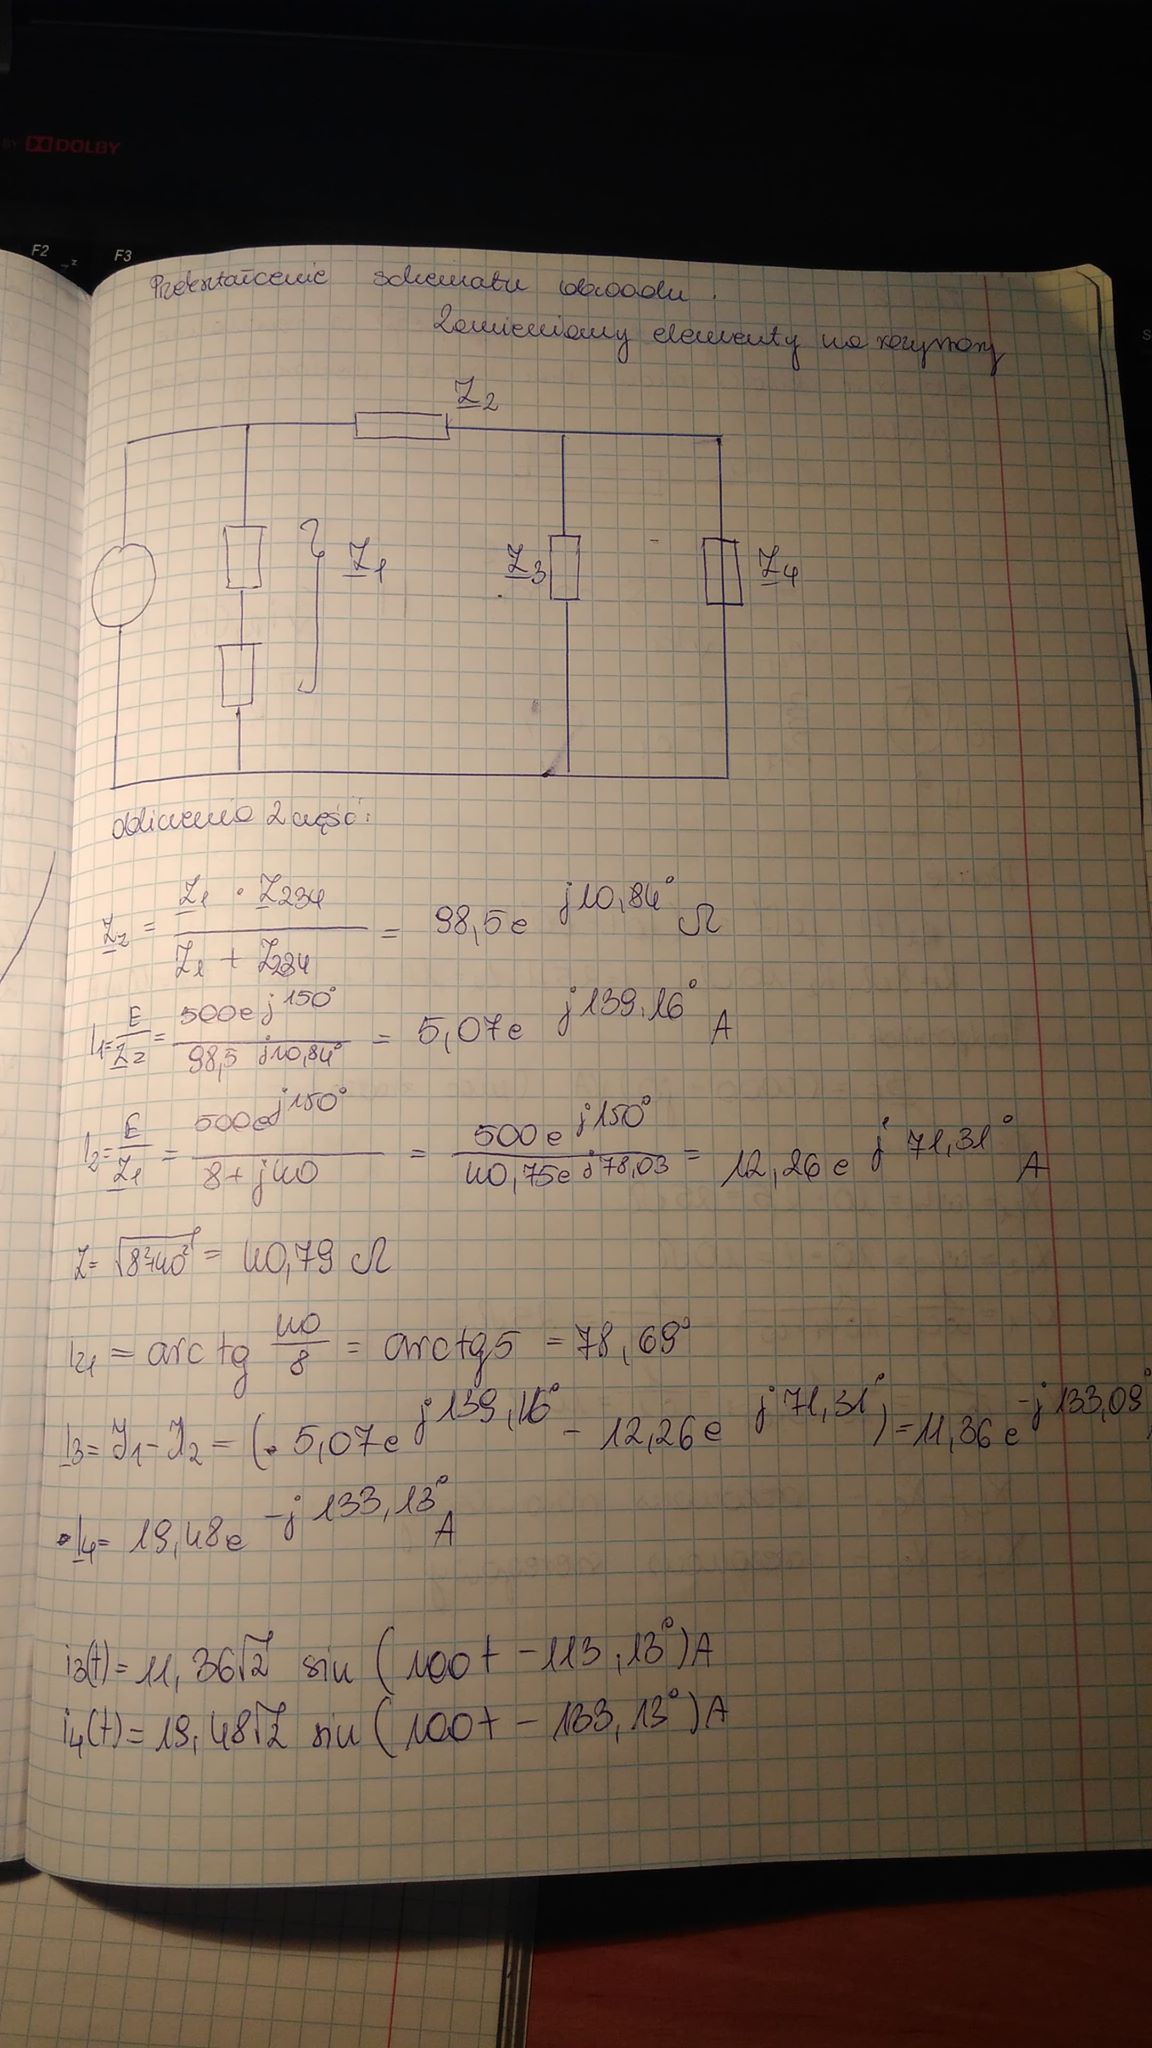 BY DOLBY
F2 F3
Przekształcenie schematu obwodu.
Zamieniamy elementy na rezystory
Z2
Z1
Z3
Z4
obliczenia 2 część:
Zz = Z1 · Z234 / Z1 + Z234 = 98,5e^j10,84° Ω
I1 = E/Zz = 500e^j150° / 98,5 j10,84° = 5,07e^j139,16° A
I2 = E/Z1 = 500e^j150° / 8+j40 = 500e^j150° / 40,75e^j78,03 = 12,26e^j71,31° A
Z = √8²+40² = 40,79 Ω
= arctg 40/8 = arctg5 = 78,69°
I3 = I1 - I2 = (5,07e^j139,16° - 12,26e^j71,31°) = 11,36e^-j133,09°
I4 = 19,48e^-j133,13° A
i3(t) = 11,36√2 sin (100t - 113,13°)A
i4(t) = 19,48√2 sin (100t - 133,13°)A